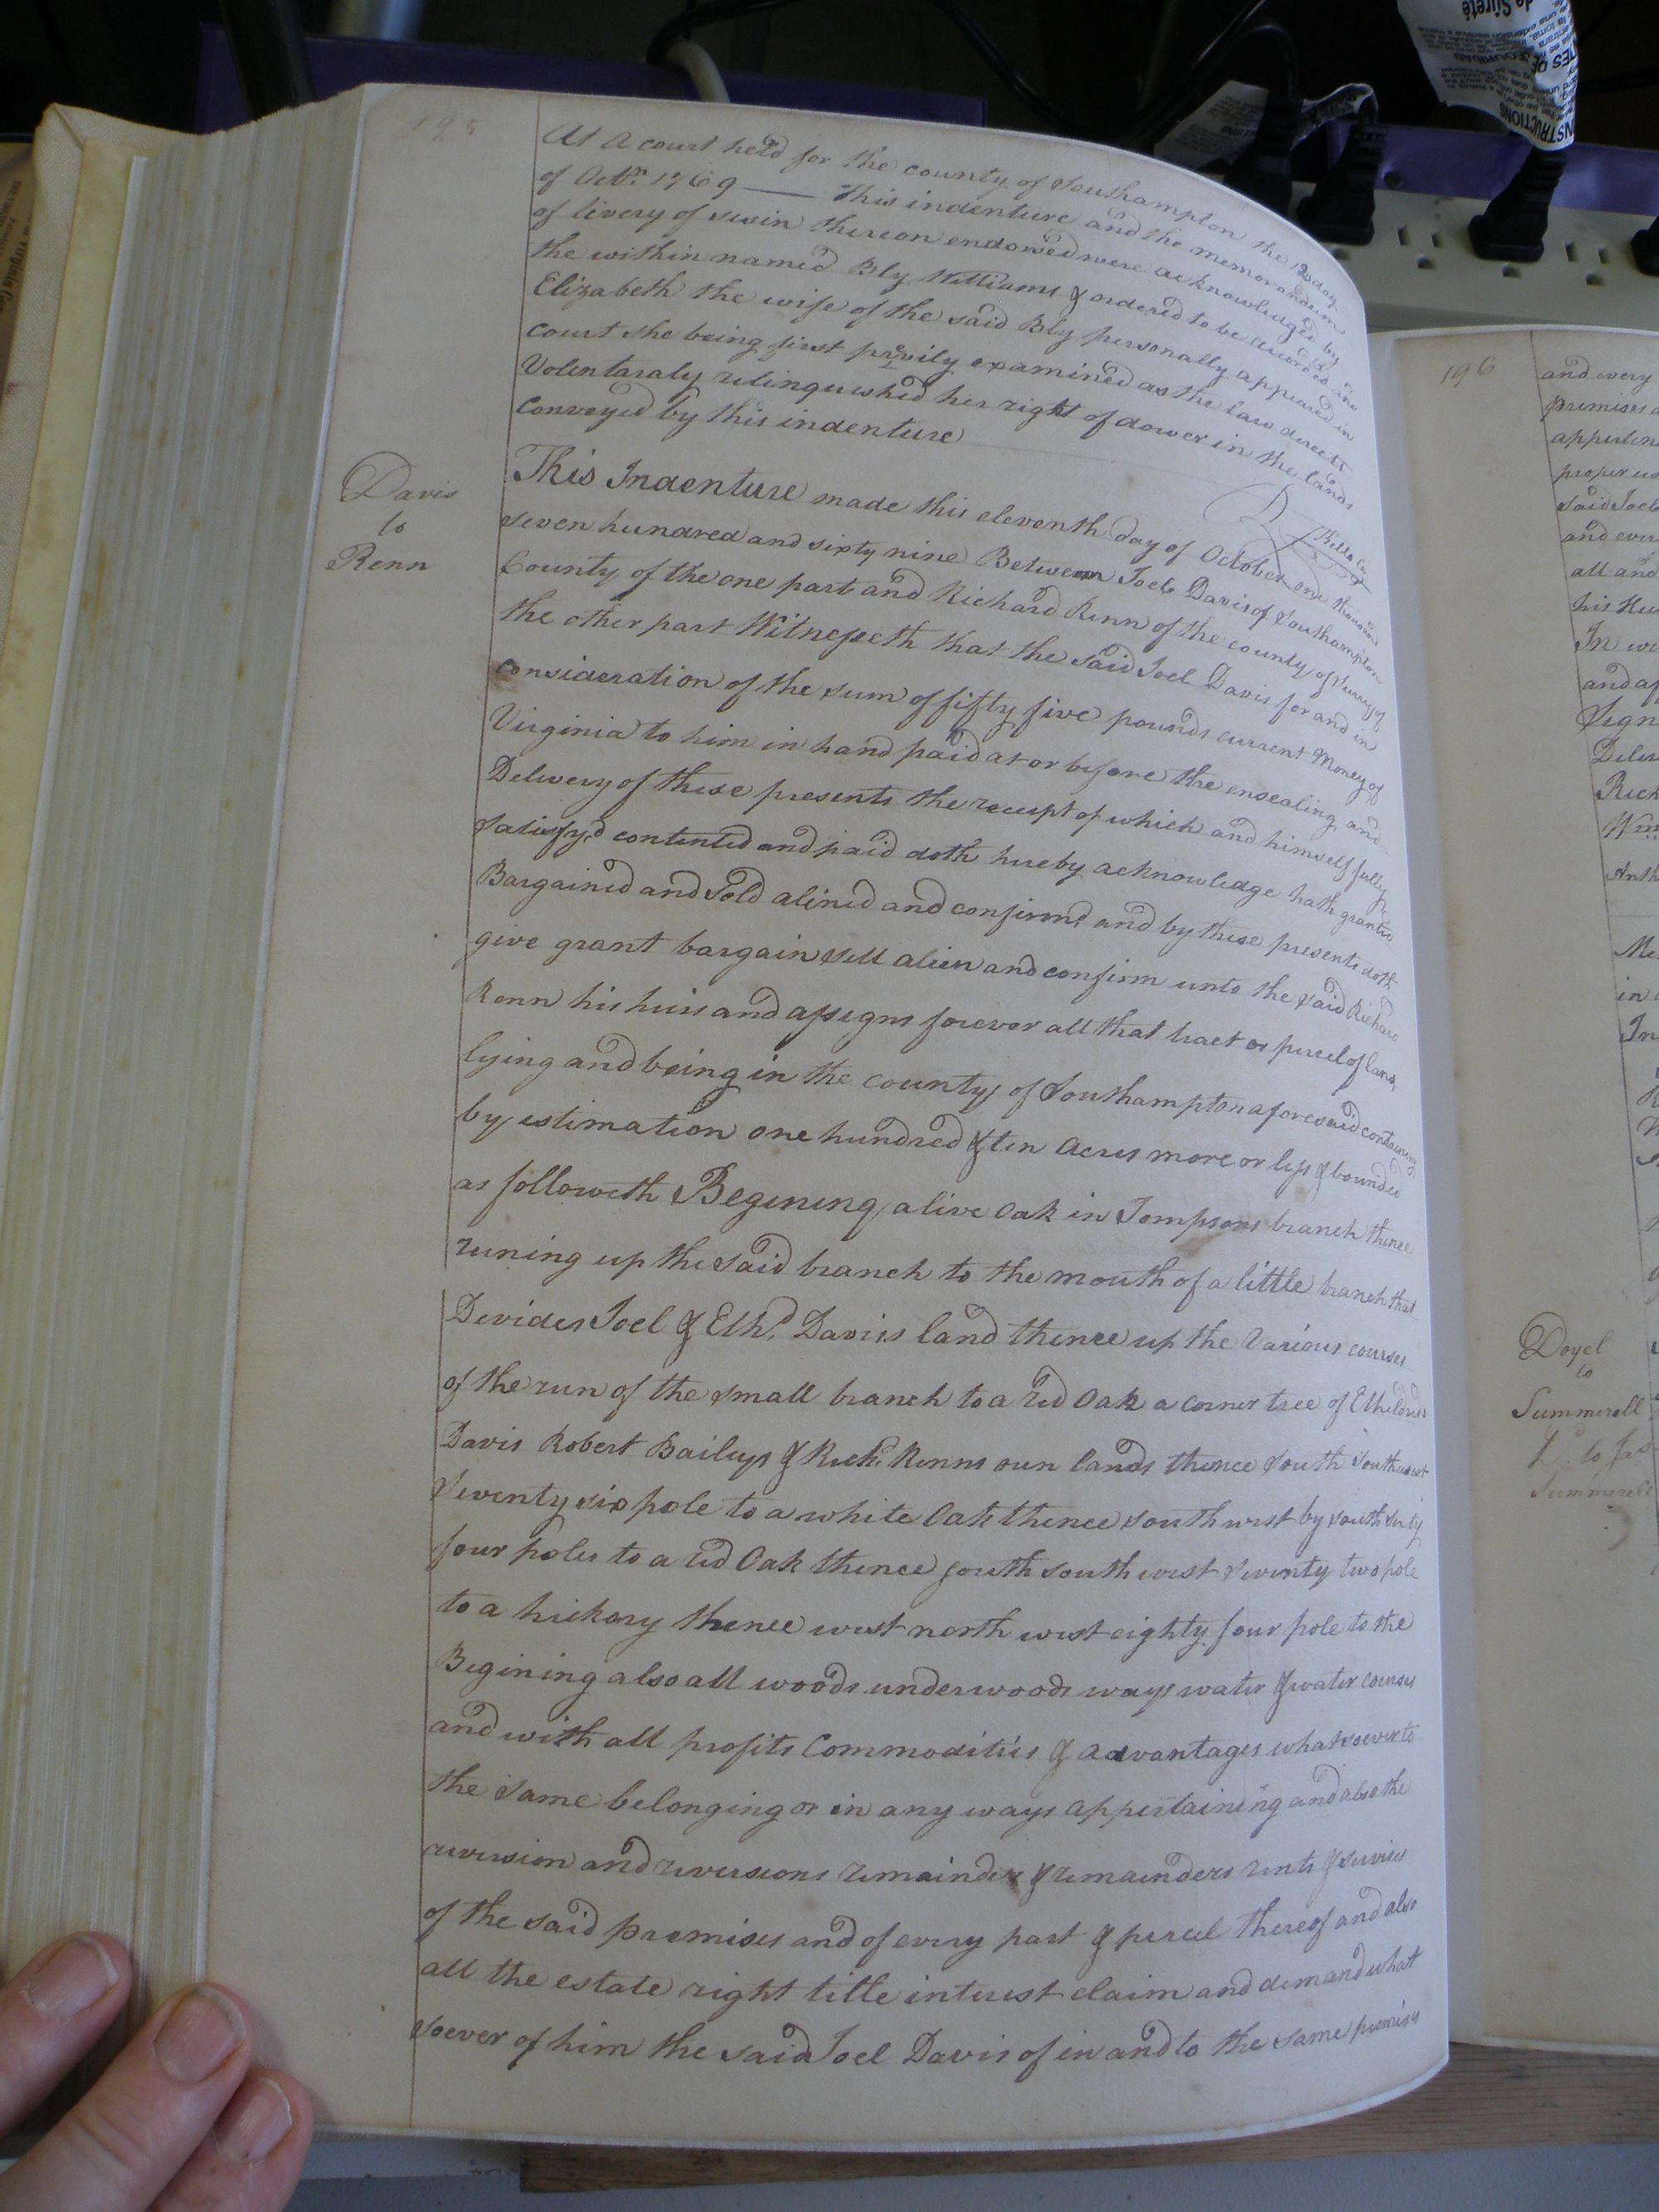 195
At a court held for the county of Southampton the 12 day
of Octr. 1769 — This indenture and the memorandum
of livery of seisin thereon endorsed were acknowledged by
the within named Bly Williams & ordered to be recorded and
Elizabeth the wife of the said Bly personally appeared in
court she being first privily examined as the law directs
Volentaraly relinquished her right of dower in the lands
Conveyed by this indenture
Davis
to
Renn
This Indenture made this eleventh day of October one thousand
seven hundred and sixty nine Between Joel Davis of Southampton
County of the one part and Richard Renn of the county of Surry of
the other part Witnesseth that the said Joel Davis for and in
consideration of the sum of fifty five pounds current Money of
Virginia to him in hand paid at or before the ensealing and
Delivery of these presents the receipt of which and himself fully
satisfy,d contented and paid doth hereby acknowledge hath granted
Bargained and Sold alined and confirmd and by these presents doth
give grant bargain sell alien and confirm unto the said Richard
Renn his heirs and assigns forever all that tract or percel of land
lying and being in the county of Southampton aforesaid containing
by estimation one hundred & ten acres more or less & bounded
as followeth Begining a live Oak in Tompsons branch thence
runing up the said branch to the mouth of a little branch that
Devides Joel & Ethd. Daviis land thence up the Various courses
of the run of the small branch to a red Oak a corner tree of Etheldred
Davis Robert Baileys & Richd. Renns own lands thence South Southwest
Seventy six pole to a white Oak thence south west by south sixty
four poles to a red Oak thence south south west seventy two pole
to a hickory thence west north west eighty four pole to the
Begining also all woods underwoods ways water & water courses
and with all profits Commodities & advantages whatsoever to
the same belonging or in any ways appertaining and also the
reversion and reversions remainder & remainders rents & servises
of the said premises and of every part & percel thereof and also
all the estate right title interest claim and demand what
soever of him the said Joel Davis of in and to the same premises
196
and every
premises a
apperten
proper us
said Joel
and ever
all and
his Hei
In wi
and af
Sign
Deliv
Rich
Wm
Anth
Me
in
Doyel
to
Summerell
Summerell